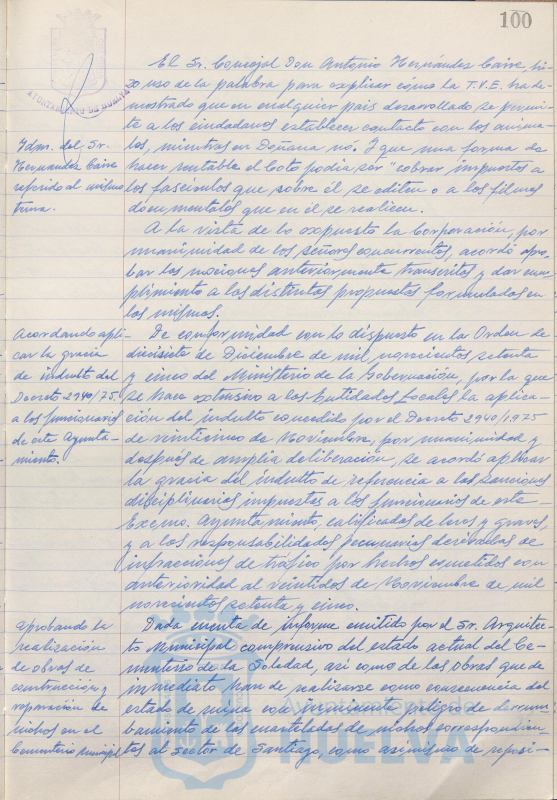 100
AYUNTAMIENTO DE HUELVA
El Sr. Concejal Don Antonio Hernández Caire, hi-
zo uso de la palabra para explicar cómo la T.V.E. ha de-
mostrado que en cualquier pais desarrollado se permi-
te a los ciudadanos establecer contacto con los anima-
les, mientras en Doñana no. Y que una forma de
hacer rentable el Coto podia ser "cobrar impuestos a
los fasciculos que sobre él se editen o a los filmes
documentales que en él se realicen.
Idm. del Sr.
Hernandez Caire
referido al mismo
tema.
A la vista de lo expuesto la Corporación, por
unanimidad de los señores concurrentes, acordó apro-
bar las mociones anteriormente transcritas y dar cum-
plimiento a las distintas propuestas formuladas en
las mismas.
Acordando apli-
car la gracia
de indulto del
Decreto 2940/75.
a los funcionarios
de este Ayunta-
miento.
De conformidad con lo dispuesto en la Orden de
diecisiete de Diciembre de mil novecientos setenta
y cinco del Ministerio de la Gobernación, por la que
se hace extensivo a las Entidades Locales la aplica-
ción del indulto concedido por el Decreto 2940/1,975
de veinticinco de Noviembre, por unanimidad y
después de amplia deliberación, se acordó aplicar
la gracia del indulto de referencia a las sanciones
disciplinarias impuestas a los funcionarios de este
Excmo. Ayuntamiento, calificadas de leves y graves,
y a las responsabilidades pecuniarias derivadas de
infracciones de tráfico por hechos cometidos con
anterioridad al veintidos de Noviembre de mil
novecientos setenta y cinco.
aprobando la
realización
de obras de
construcción y
reparación de
nichos en el
Cementerio municipal
Dada cuenta de informe emitido por el Sr. Arquitec-
to Municipal comprensivo del estado actual del Ce-
menterio de la Soledad, asi como de las obras que de
inmediato han de realizarse como consecuencia del
estado de ruina con inminente peligro de derrum-
bamiento de las cuarteladas de nichos correspondien-
tes al Sector de Santiago, como asimismo de reposi-
Ayuntamiento de
HUELVA